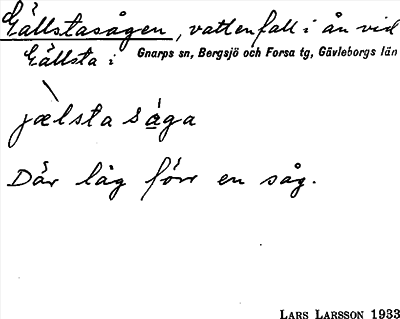 Gällstasågen, vattenfall i ån vid
Gällsta i Gnarps sn, Bergsjö och Forsa tg, Gävleborgs län
jælsta sága
Där låg förr en såg.
LARS LARSSON 1933